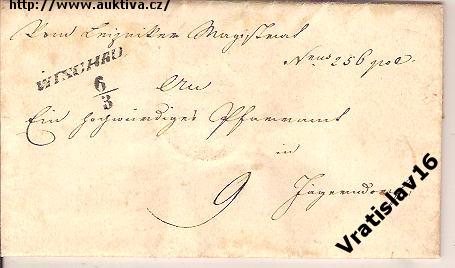 http://www.auktiva.cz/
Vom Leipniker Magistrat
Nrus 256 pol.
WISCHAU
6/3
An
Ein hochwürdiges Pfarramt
in
9 Jägerndorf
Vratislav16